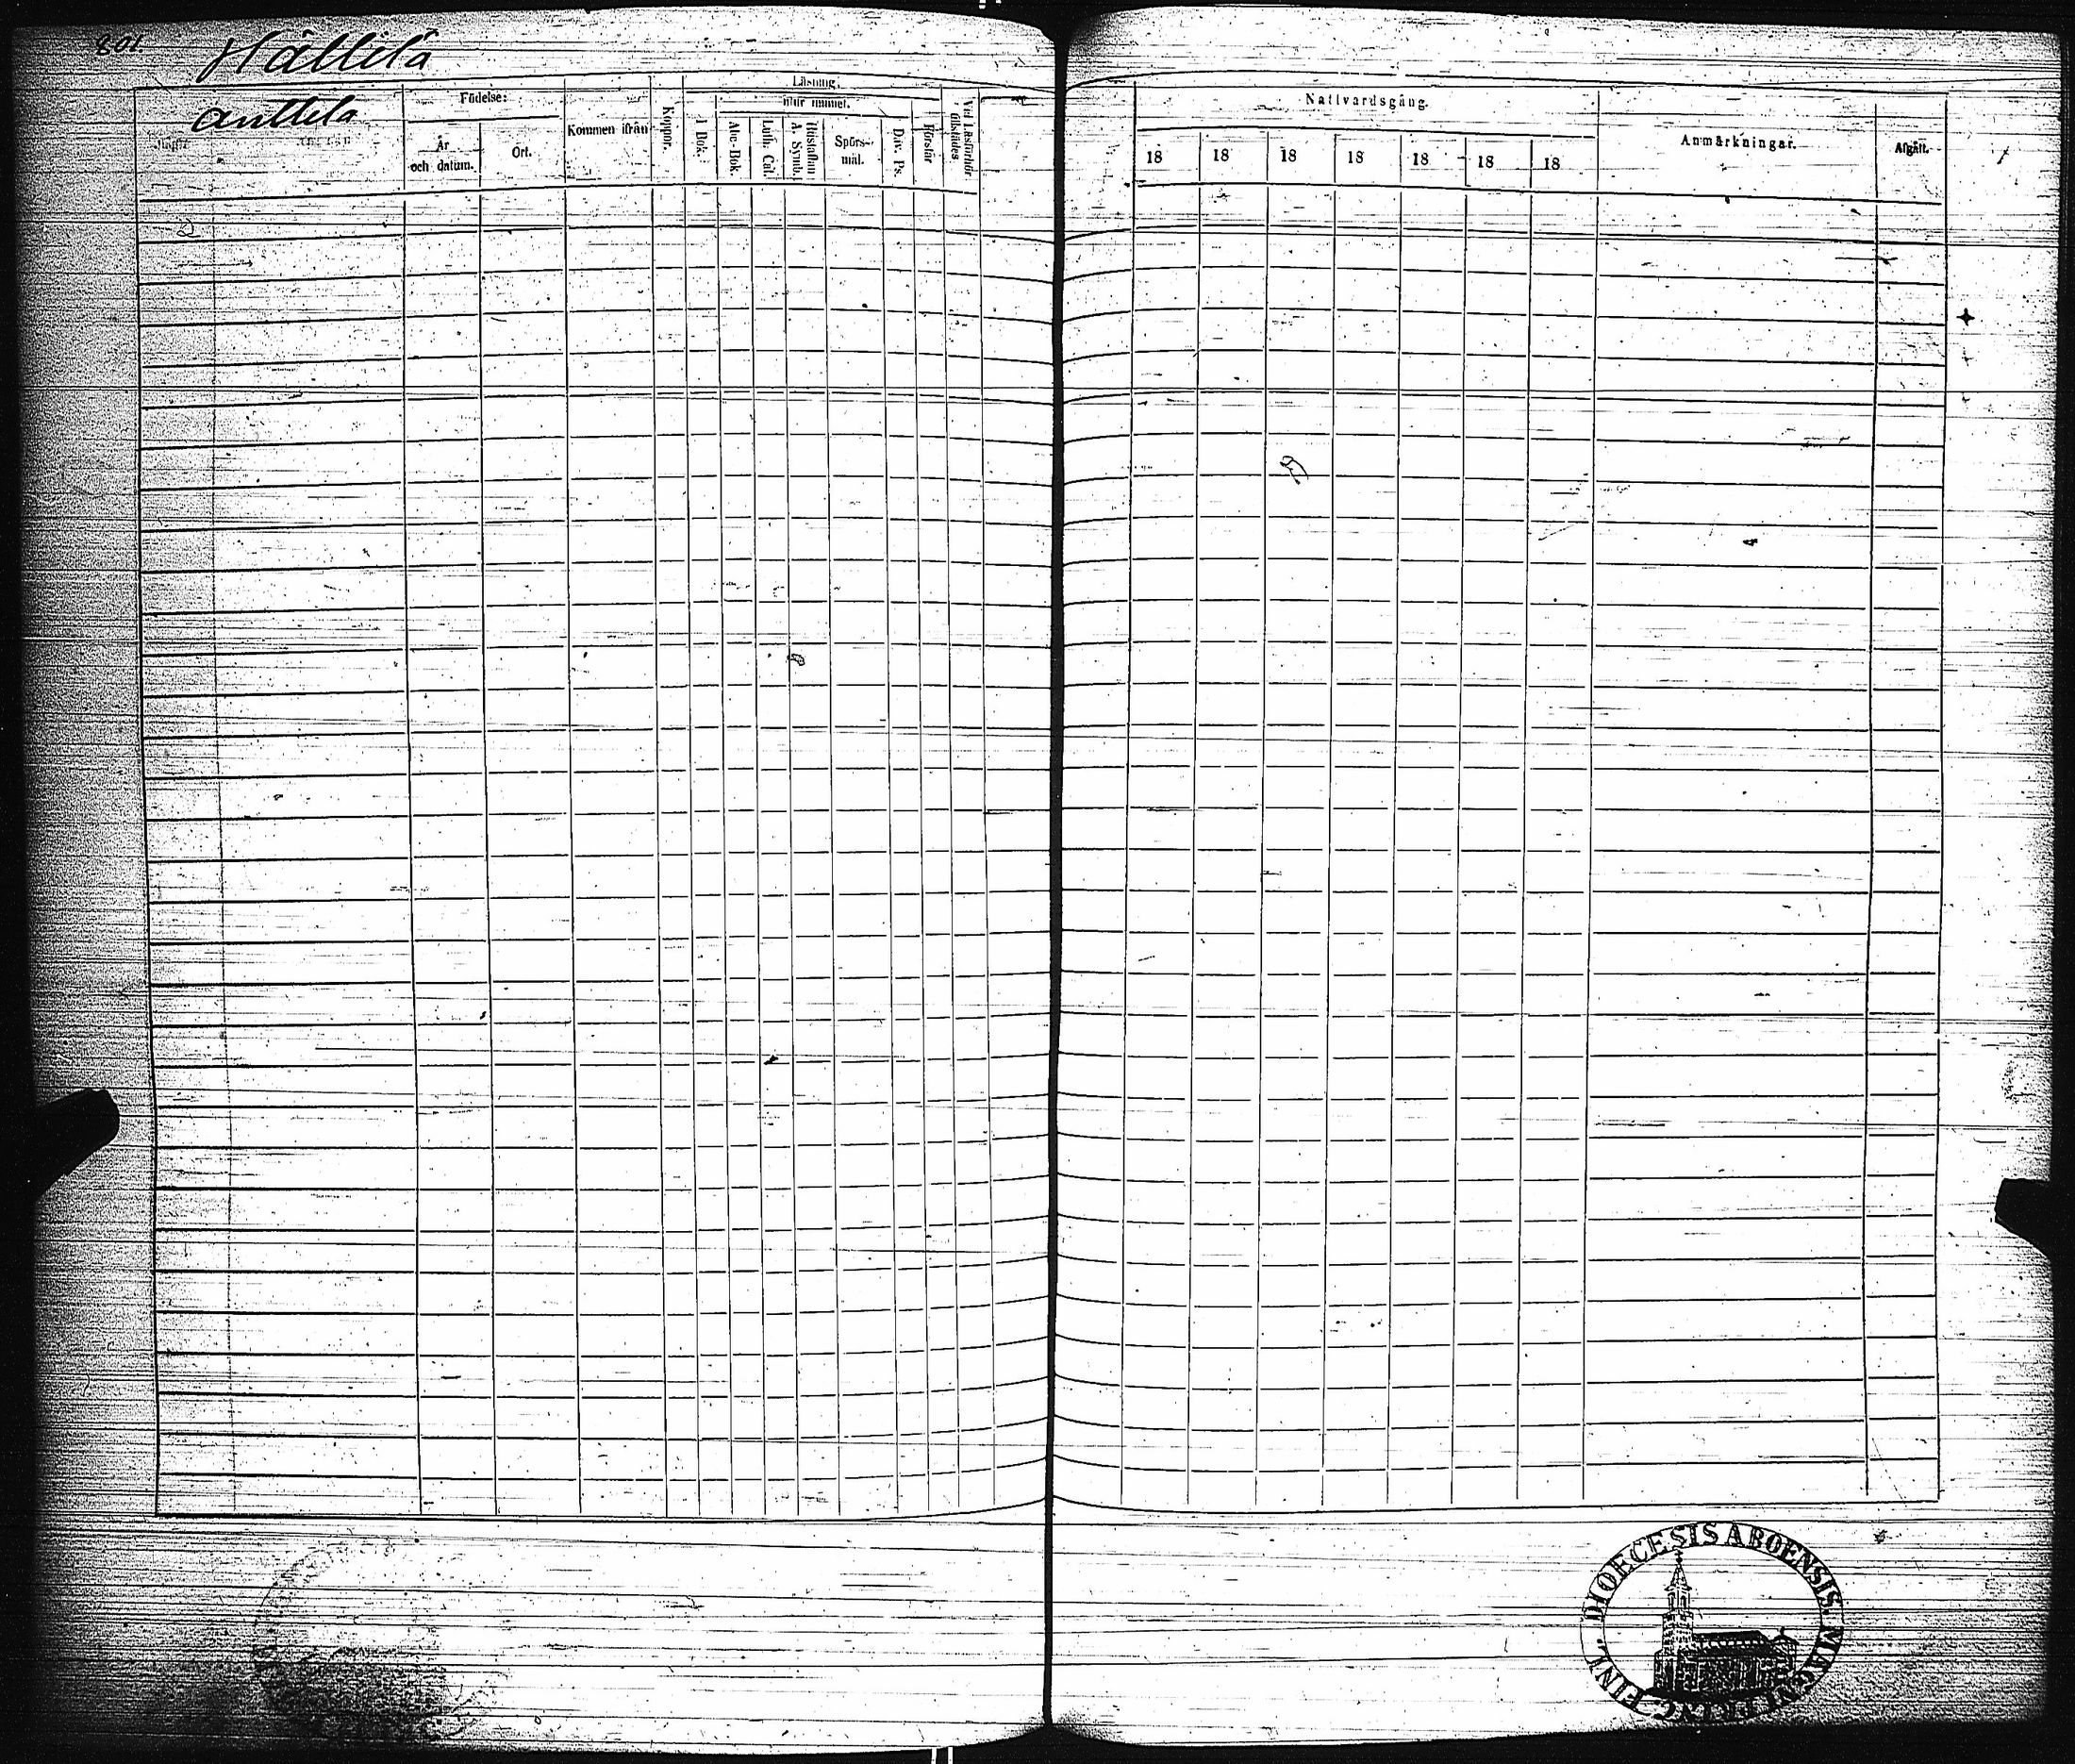 801.
Hällilä
Anttila
Födelse:
År
och datum.
Ort.
Kommen ifrån
Koppor.
Läsning.
I Bok.
Abc-Bok.
Luth. Cat.
Hustaflan
A. Symb.
Spörs-
mål.
Dav. Ps.
Förstår
Vid Läsförhör
tillstädes
Nattvardsgång.
18 18 18 18 18 18 18
Anmärkningar.
Afgått.
2
DIOECESIS ABOENSIS. MAGNI FINL.